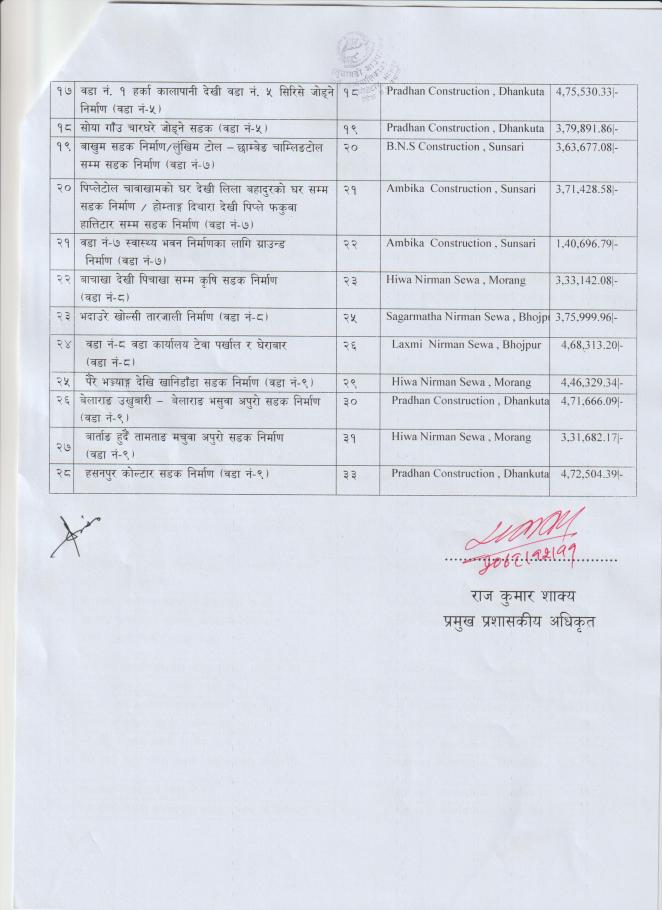 १७ वडा नं. १ हर्का कालापानी देखी वडा नं. ५ सिरिसे जोड्ने १८ Pradhan Construction , Dhankuta 4,75,530.33|-
निर्माण (वडा नं-५)
१८ सोया गाँउ चारघरे जोड्ने सडक (वडा नं-५) १९ Pradhan Construction , Dhankuta 3,79,891.86|-
१९ बाखुम सडक निर्माण/लुंखिम टोल – छाम्बेङ चाम्लिङटोल २० B.N.S Construction , Sunsari 3,63,677.08|-
सम्म सडक निर्माण (वडा नं-७)
२० पिप्लेटोल चावाखामको घर देखी लिला बहादुरको घर सम्म २१ Ambika Construction , Sunsari 3,71,428.58|-
सडक निर्माण / होम्ताङ्ग दिचारा देखी पिप्ले फकुवा
हात्तिटार सम्म सडक निर्माण (वडा नं-७)
२१ वडा नं-७ स्वास्थ्य भवन निर्माणका लागि ग्राउन्ड २२ Ambika Construction , Sunsari 1,40,696.79|-
निर्माण (वडा नं-७)
२२ बाचाखा देखी पिचाखा सम्म कृषि सडक निर्माण २३ Hiwa Nirman Sewa , Morang 3,33,142.08|-
(वडा नं-८)
२३ भदाउरे खोल्सी तारजाली निर्माण (वडा नं-८) २५ Sagarmatha Nirman Sewa , Bhojpu 3,75,999.96|-
२४ वडा नं-८ वडा कार्यालय टेवा पर्खाल र घेराबार २६ Laxmi Nirman Sewa , Bhojpur 4,68,313.20|-
(वडा नं-८)
२५ पैरे भञ्ज्याङ्ग देखि खानिडाँडा सडक निर्माण (वडा नं-९) २९ Hiwa Nirman Sewa , Morang 4,46,329.34|-
२६ बेलाराङ उखुबारी – बेलाराङ भसुवा अपुरो सडक निर्माण ३० Pradhan Construction , Dhankuta 4,71,666.09|-
(वडा नं-९)
२७ बार्ताङ हुदैं तामताङ मचुवा अपुरो सडक निर्माण ३१ Hiwa Nirman Sewa , Morang 3,31,682.17|-
(वडा नं-९)
२८ हसनपुर कोल्टार सडक निर्माण (वडा नं-९) ३३ Pradhan Construction , Dhankuta 4,72,504.39|-
राज कुमार शाक्य
प्रमुख प्रशासकीय अधिकृत